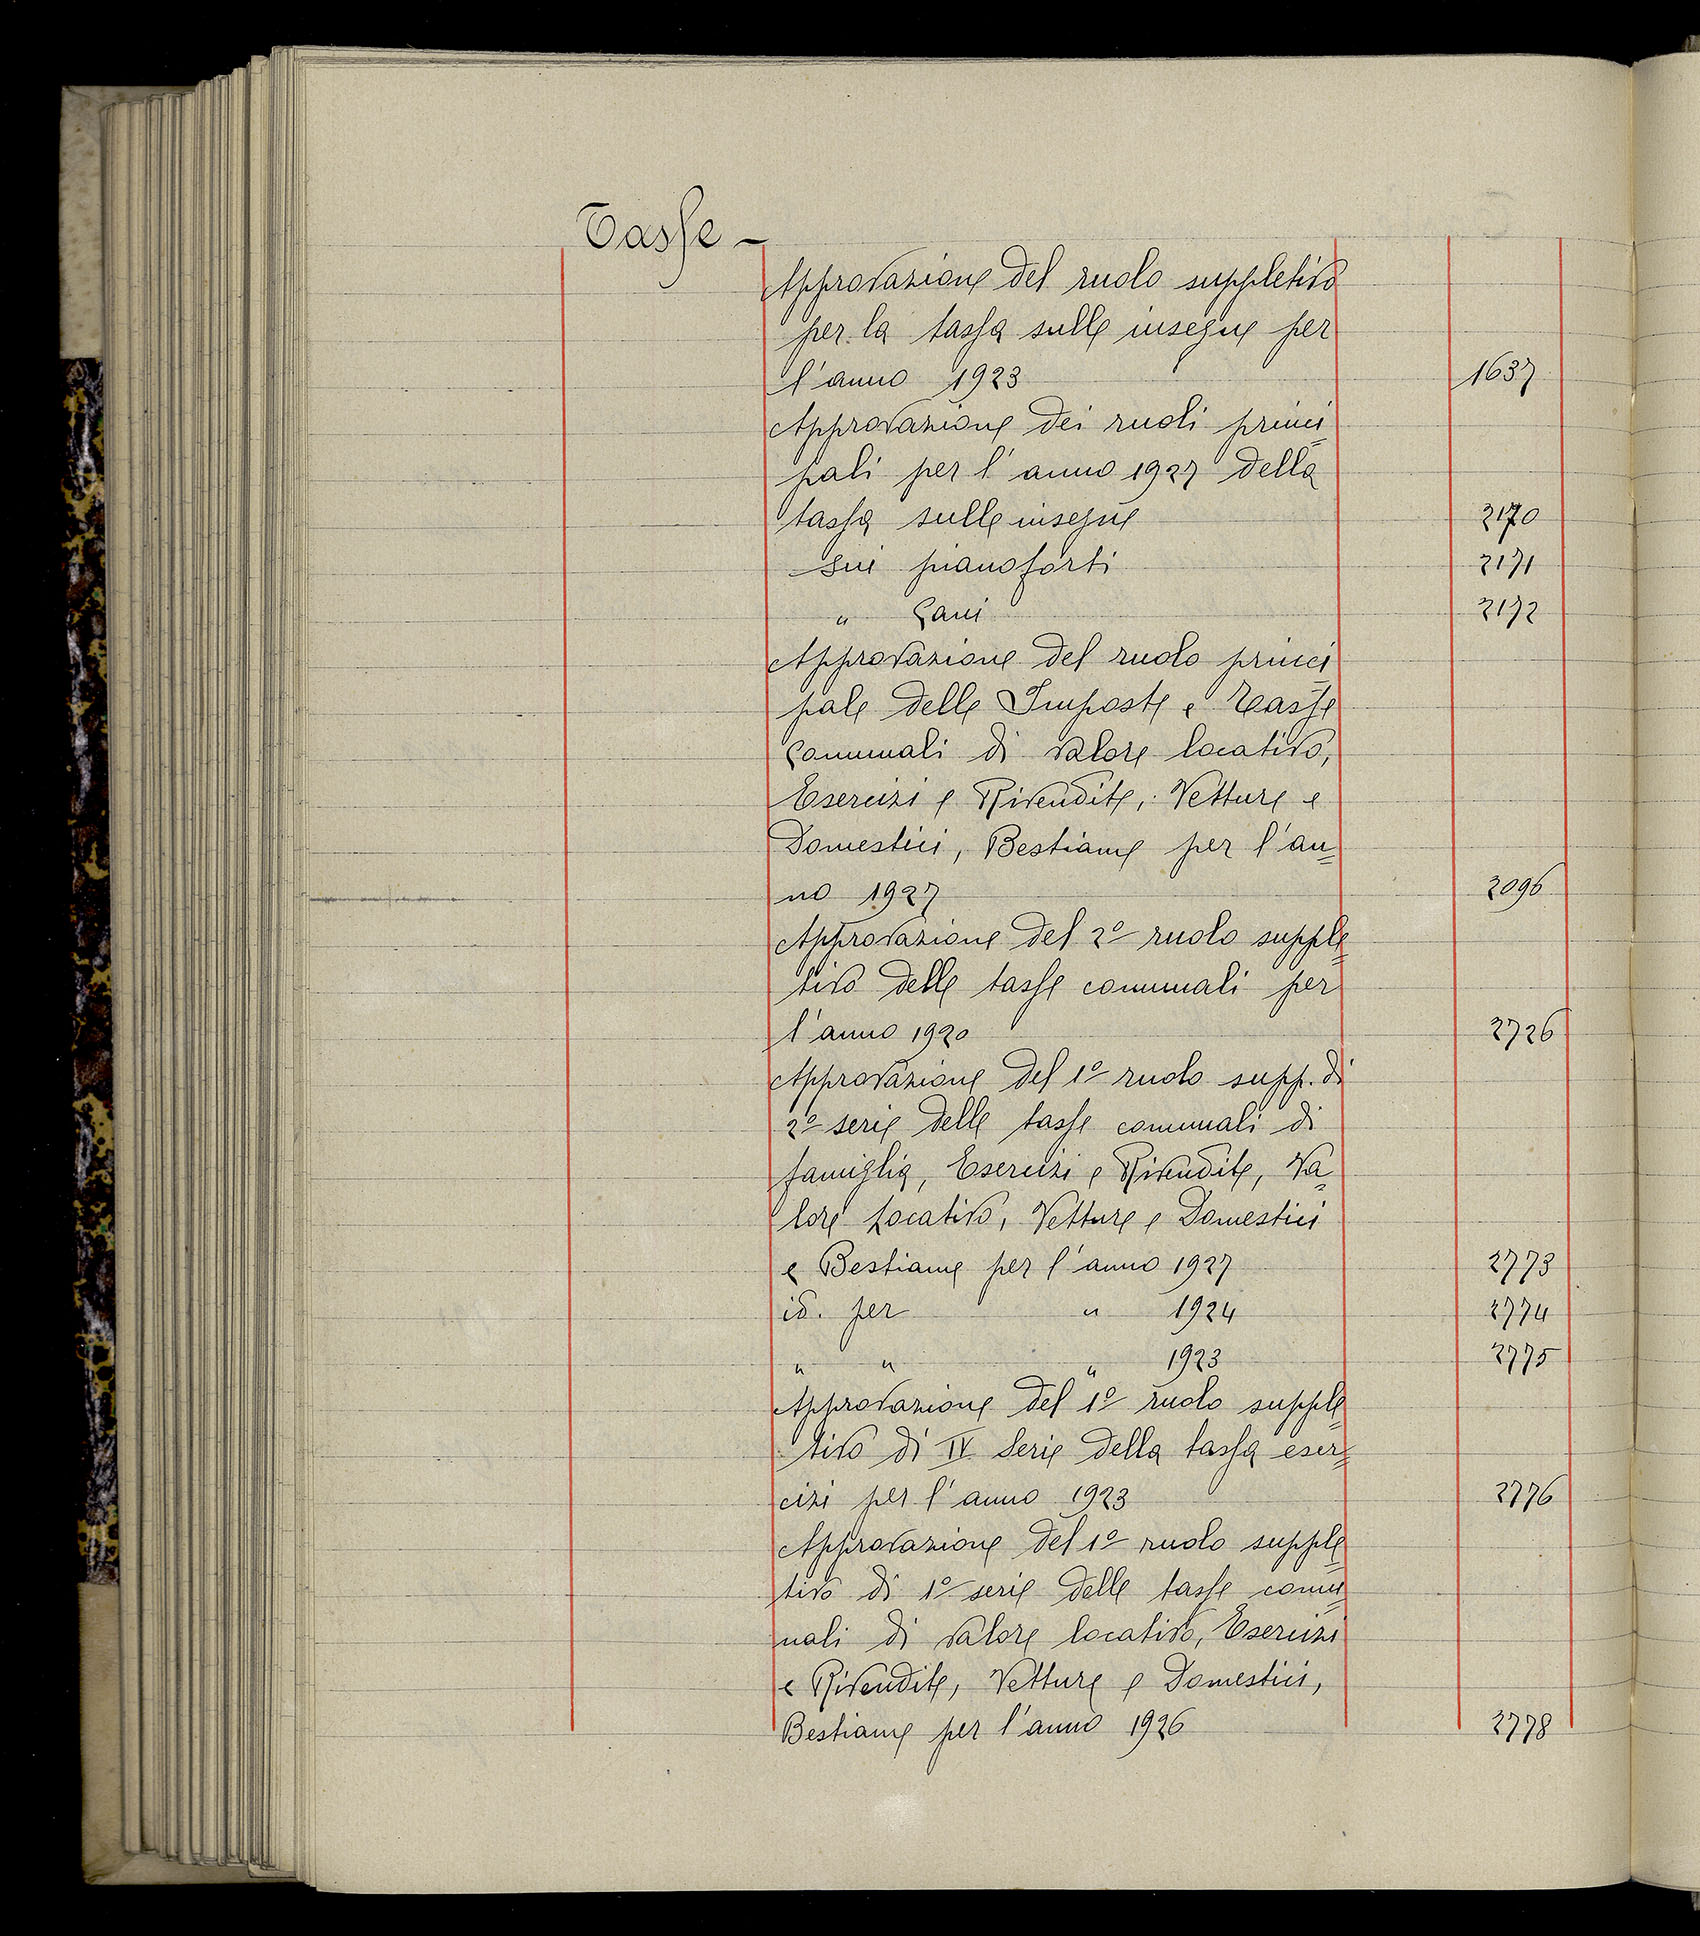 Tasse -
Approvazione del ruolo suppletivo
per la tassa sulle insegne per
l'anno 1923 1637
Approvazione dei ruoli princi=
pali per l'anno 1927 della
tassa sulle insegne 2170
sui pianoforti 2171
" Cani 2172
Approvazione del ruolo princi=
pale delle Imposte e Tasse
Comunali di valore locativo,
Esercizi e Rivendite, Vetture e
Domestici, Bestiame per l'an=
no 1927 2096
Approvazione del 2º ruolo supple=
tivo delle tasse comunali per
l'anno 1920 2726
Approvazione del 1º ruolo supp. di
2º serie delle tasse comunali di
famiglia, Esercizi e Rivendite, Va=
lore Locativo, Vetture e Domestici
e Bestiame per l'anno 1927 2773
id. per " 1924 2774
" " " 1923 2775
Approvazione del 1º ruolo supple=
tivo di IV Serie della tassa eser=
cizi per l'anno 1923 2776
Approvazione del 1º ruolo supple=
tivo di 1º serie delle tasse comu=
nali di valore locativo, Esercizi
e Rivendite, Vetture e Domestici,
Bestiame per l'anno 1926 2778